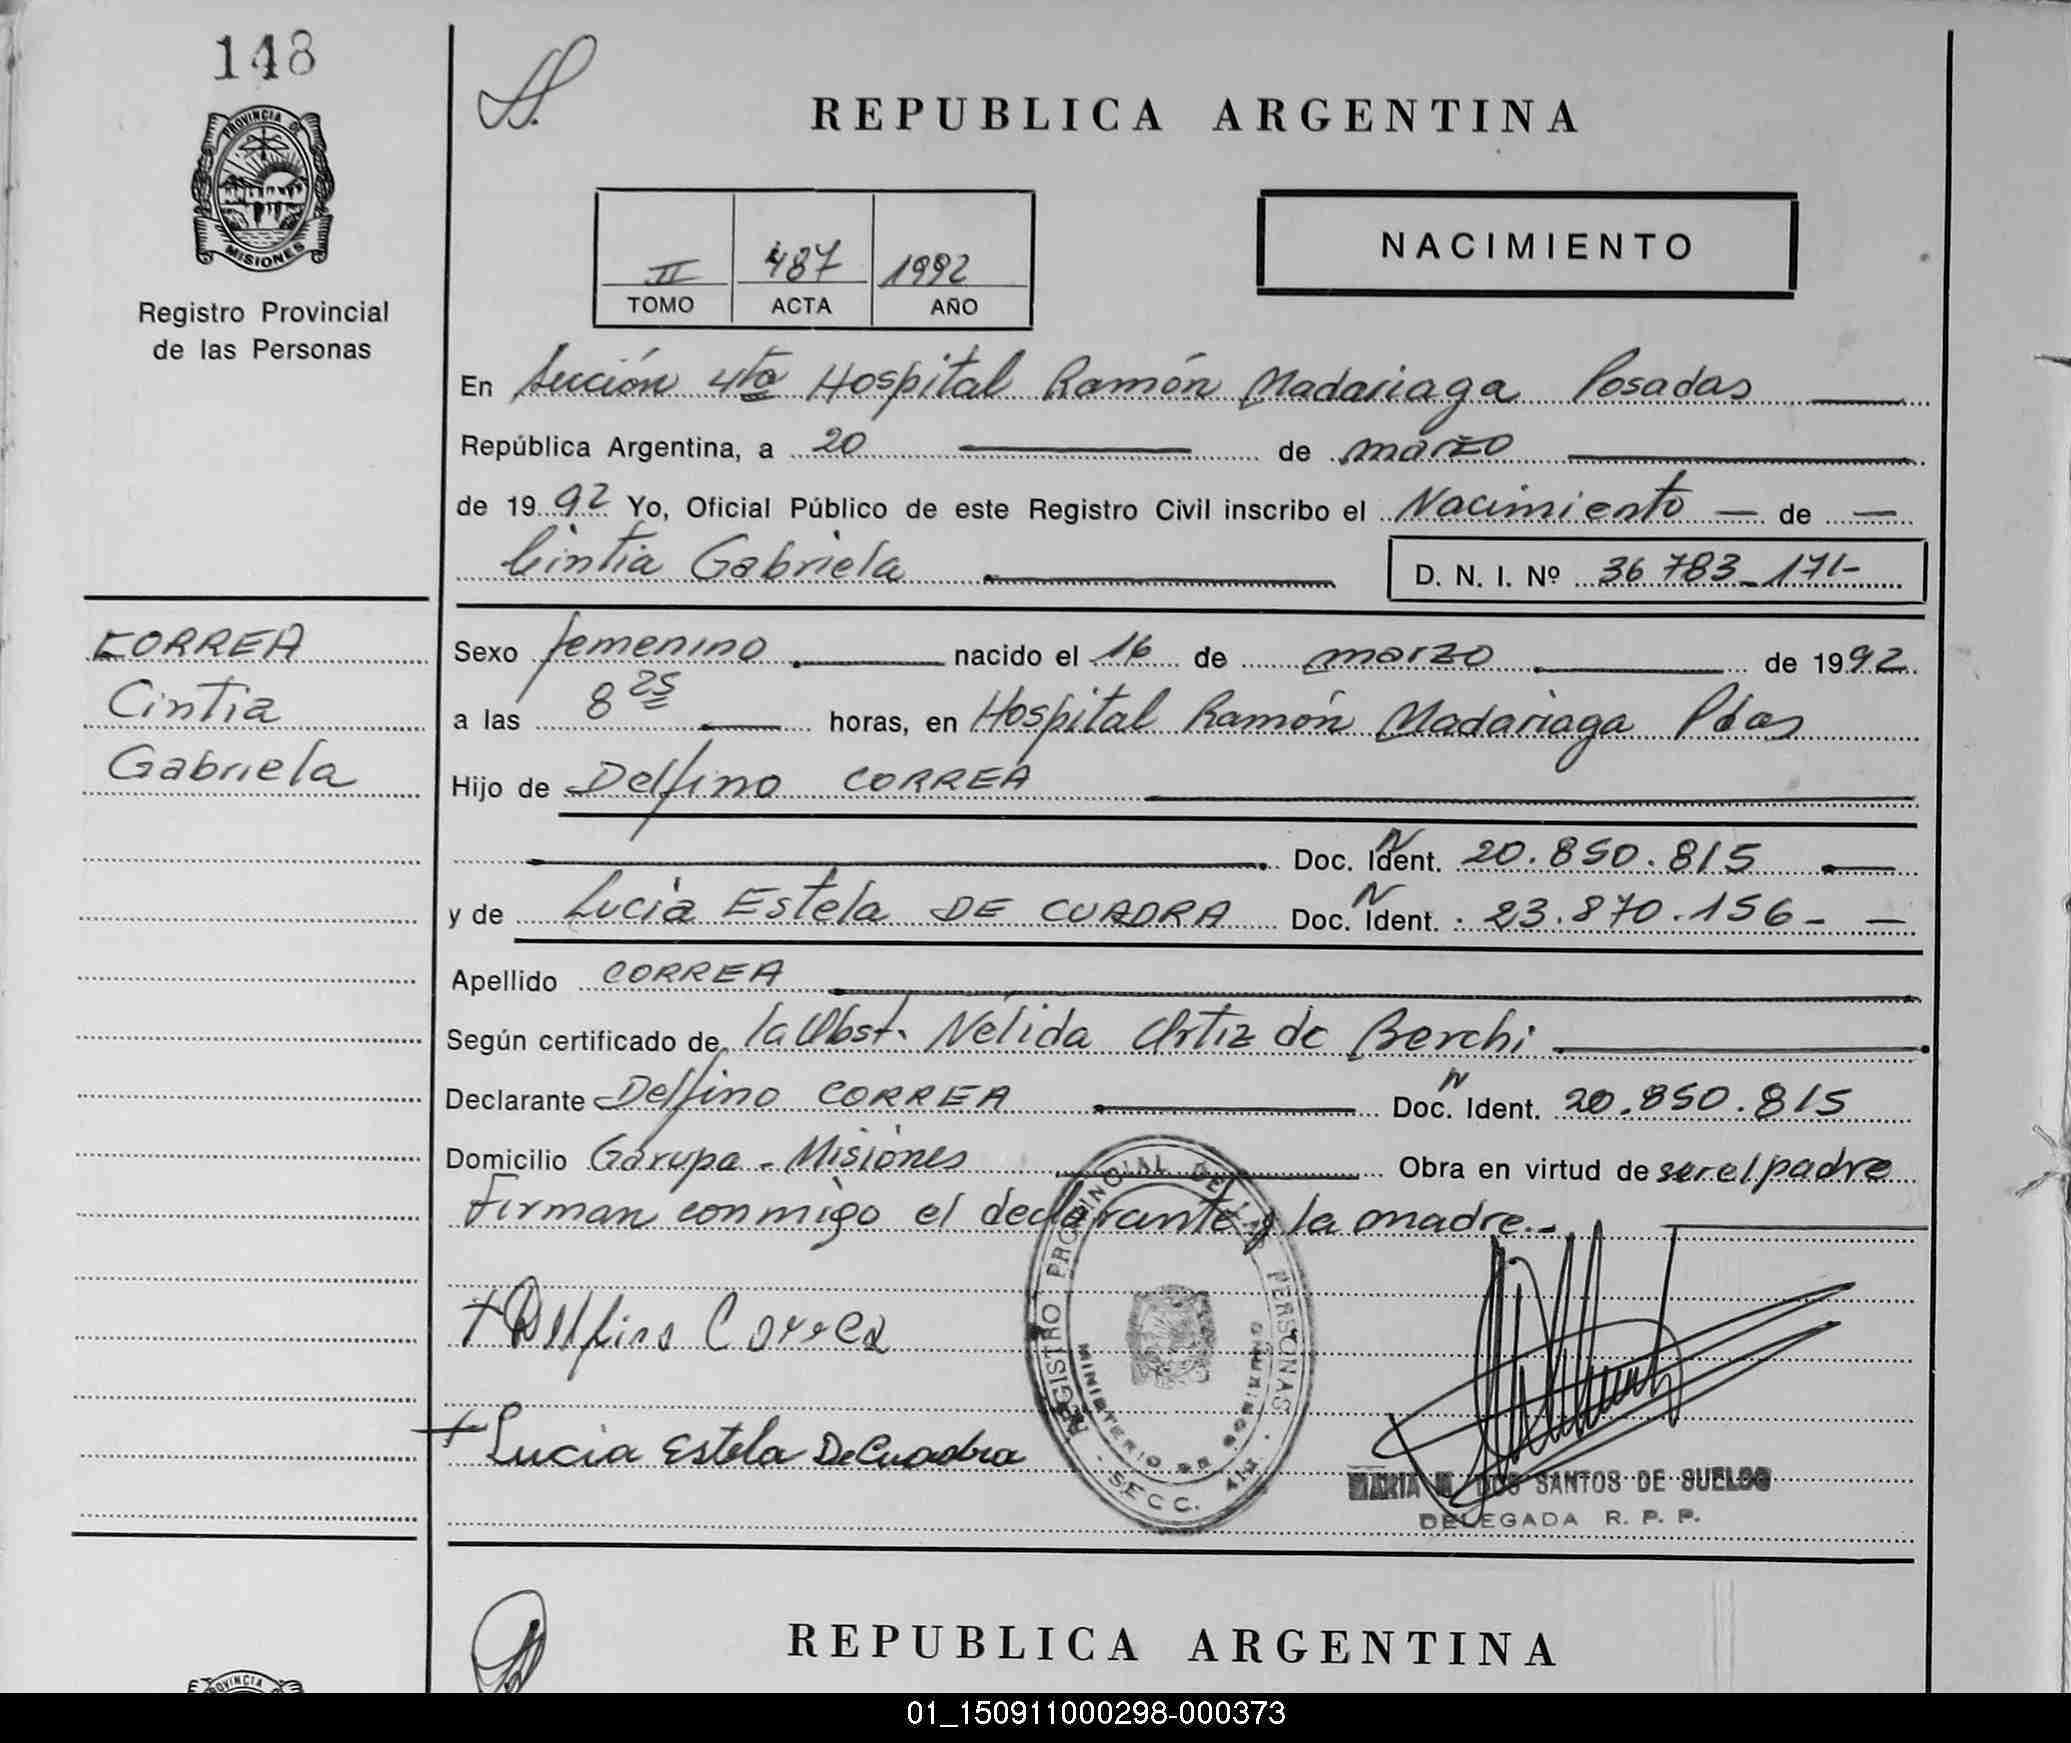 148
PROVINCIA DE
MISIONES
Registro Provincial
de las Personas
REPUBLICA ARGENTINA
II 487 1992
TOMO ACTA AÑO
NACIMIENTO
En Sección 4ta Hospital Ramón Madariaga Posadas
República Argentina, a 20 de marzo
de 1992 Yo, Oficial Público de este Registro Civil inscribo el Nacimiento — de —
Cintia Gabriela D. N. I. Nº 36 783 171-
CORREA
Cintia
Gabriela
Sexo femenino nacido el 16 de marzo de 1992
a las 8 25 horas, en Hospital Ramón Madariaga Pdas
Hijo de Delfino CORREA
Doc. Ident. N 20.850.815
y de Lucia Estela DE CUADRA Doc. Ident. N 23.870.156-
Apellido CORREA
Según certificado de la Obst. Nélida Ortiz de Berchi
Declarante Delfino CORREA Doc. Ident. N 20.850.815
Domicilio Garupa - Misiones Obra en virtud de ser el padre
Firman conmigo el declarante y la madre.-
REGISTRO PROVINCIAL DE LAS PERSONAS
MINISTERIO DE GOBIERNO
SECC. 4ta
+ Delfino Correa
+ Lucia Estela DeCuadra
MARIA M. DOS SANTOS DE SUELDO
DELEGADA R. P. P.
REPUBLICA ARGENTINA
PROVINCIA
01_150911000298-000373